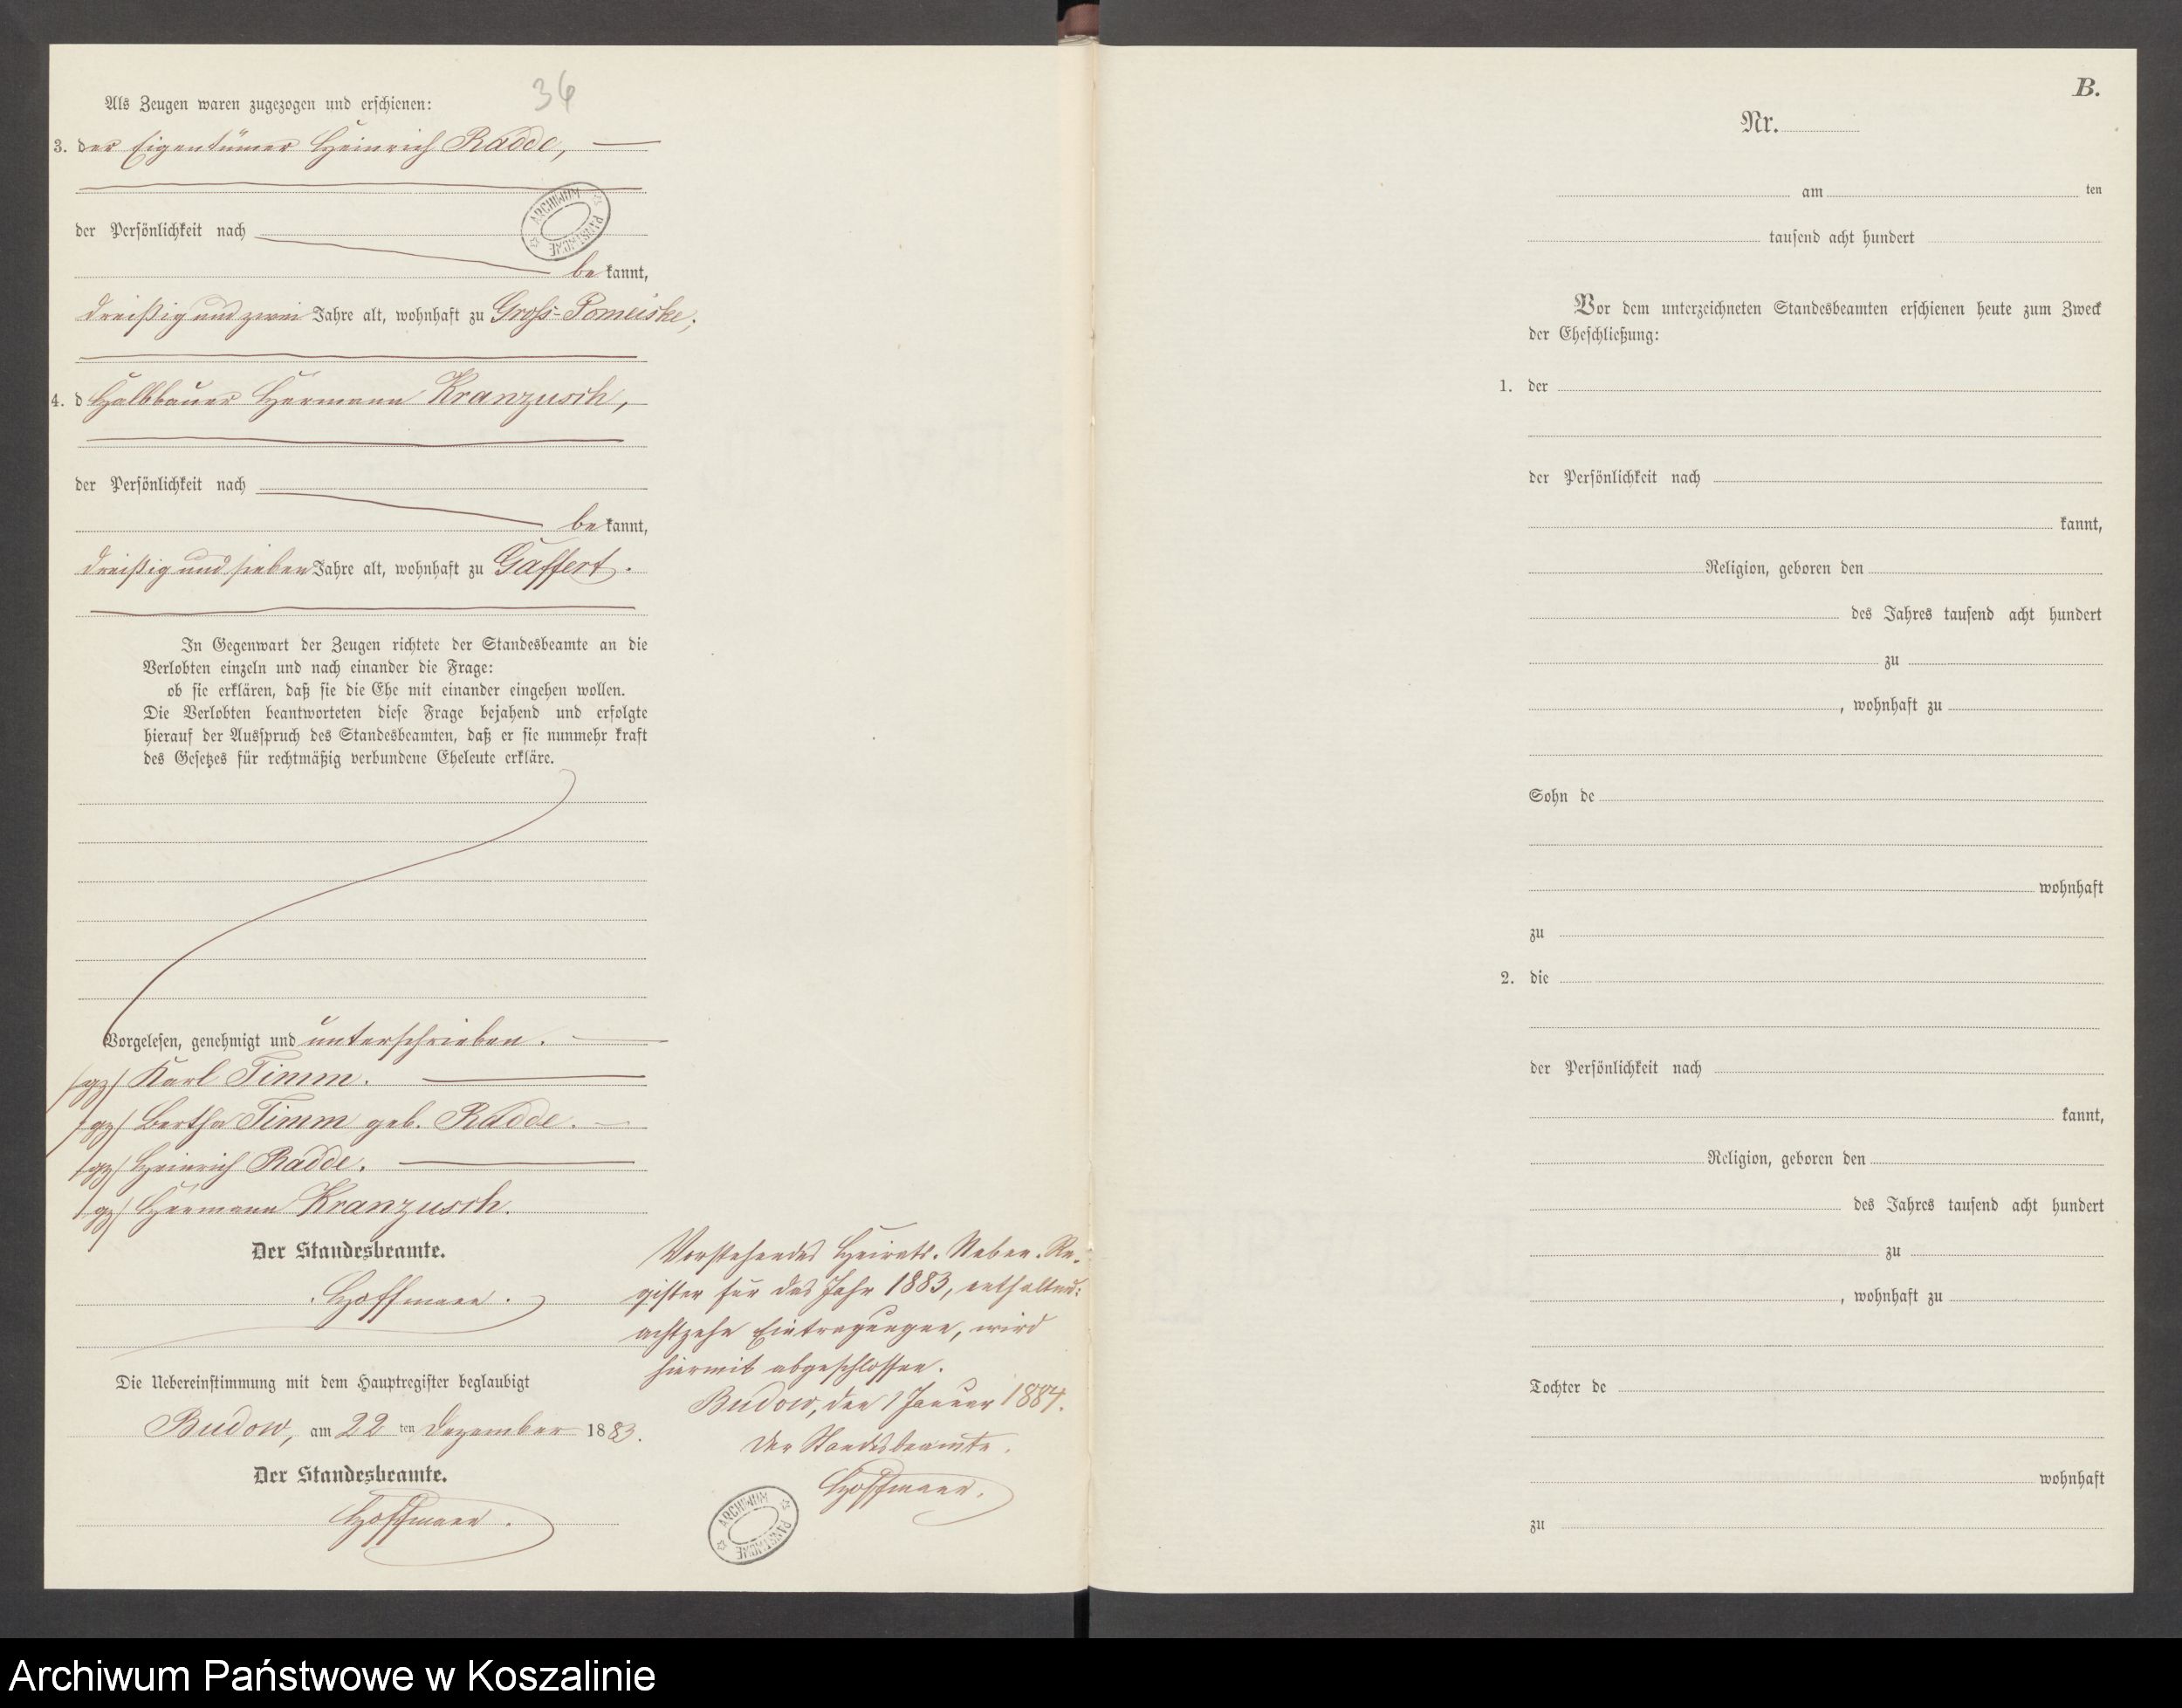 36
Als Zeugen waren zugezogen und erschienen:
3. der Eigentümer Heinrich Radde,
der Persönlichkeit nach
bekannt,
dreißig und zwei Jahre alt, wohnhaft zu Gross-Pomeiske;
4. d Halbbauer Hermann Kranzusch,
der Persönlichkeit nach
bekannt,
dreißig und sieben Jahre alt, wohnhaft zu Gaffert.
In Gegenwart der Zeugen richtete der Standesbeamte an die
Verlobten einzeln und nach einander die Frage:
ob sie erklären, daß sie die Ehe mit einander eingehen wollen.
Die Verlobten beantworteten diese Frage bejahend und erfolgte
hierauf der Ausspruch des Standesbeamten, daß er sie nunmehr kraft
des Gesetzes für rechtmäßig verbundene Eheleute erkläre.
Vorgelesen, genehmigt und unterschrieben.
/gz/ Karl Timm.
/gz/ Bertha Timm geb. Radde.
/gz/ Heinrich Radde.
/gz/ Hermann Kranzusch.
Der Standesbeamte.
Hoffmann.
Die Uebereinstimmung mit dem Hauptregister beglaubigt
Budow, am 22 ten Dezember 1883.
Der Standesbeamte.
Hoffmann.
Vorstehendes Heirats-Neben-Re-
gister für das Jahr 1883, enthaltend:
achtzehn Eintragungen, wird
hiermit abgeschlossen.
Budow, den 1 Januar 1884.
Der Standesbeamte.
Hoffmann.
ARCHIWUM PAŃSTWOWE
ARCHIWUM PAŃSTWOWE
B.
Nr.
am ten
tausend acht hundert
Vor dem unterzeichneten Standesbeamten erschienen heute zum Zweck
der Eheschließung:
1. der
der Persönlichkeit nach
kannt,
Religion, geboren den
des Jahres tausend acht hundert
zu
, wohnhaft zu
Sohn de
wohnhaft
zu
2. die
der Persönlichkeit nach
kannt,
Religion, geboren den
des Jahres tausend acht hundert
zu
, wohnhaft zu
Tochter de
wohnhaft
zu
Archiwum Państwowe w Koszalinie